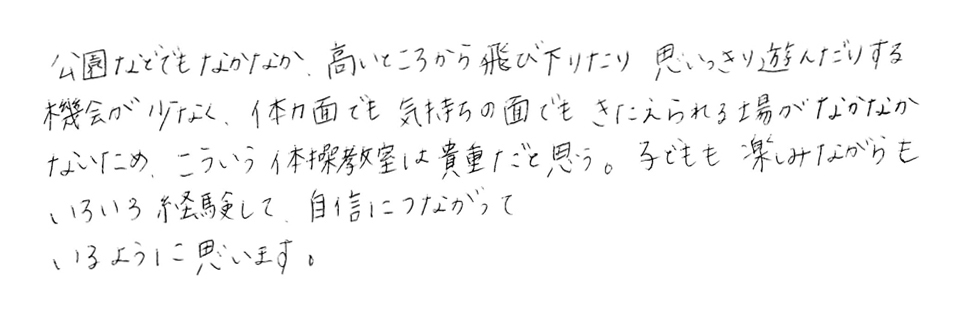 公園などでもなかなか、高いところから飛び下りたり 思いっきり遊んだりする
機会が少なく、体力面でも 気持ちの面でも きたえられる場がなかなか
ないため、こういう体操教室は貴重だと思う。子どもも 楽しみながらも
いろいろ経験して、自信につながって
いるように思います。